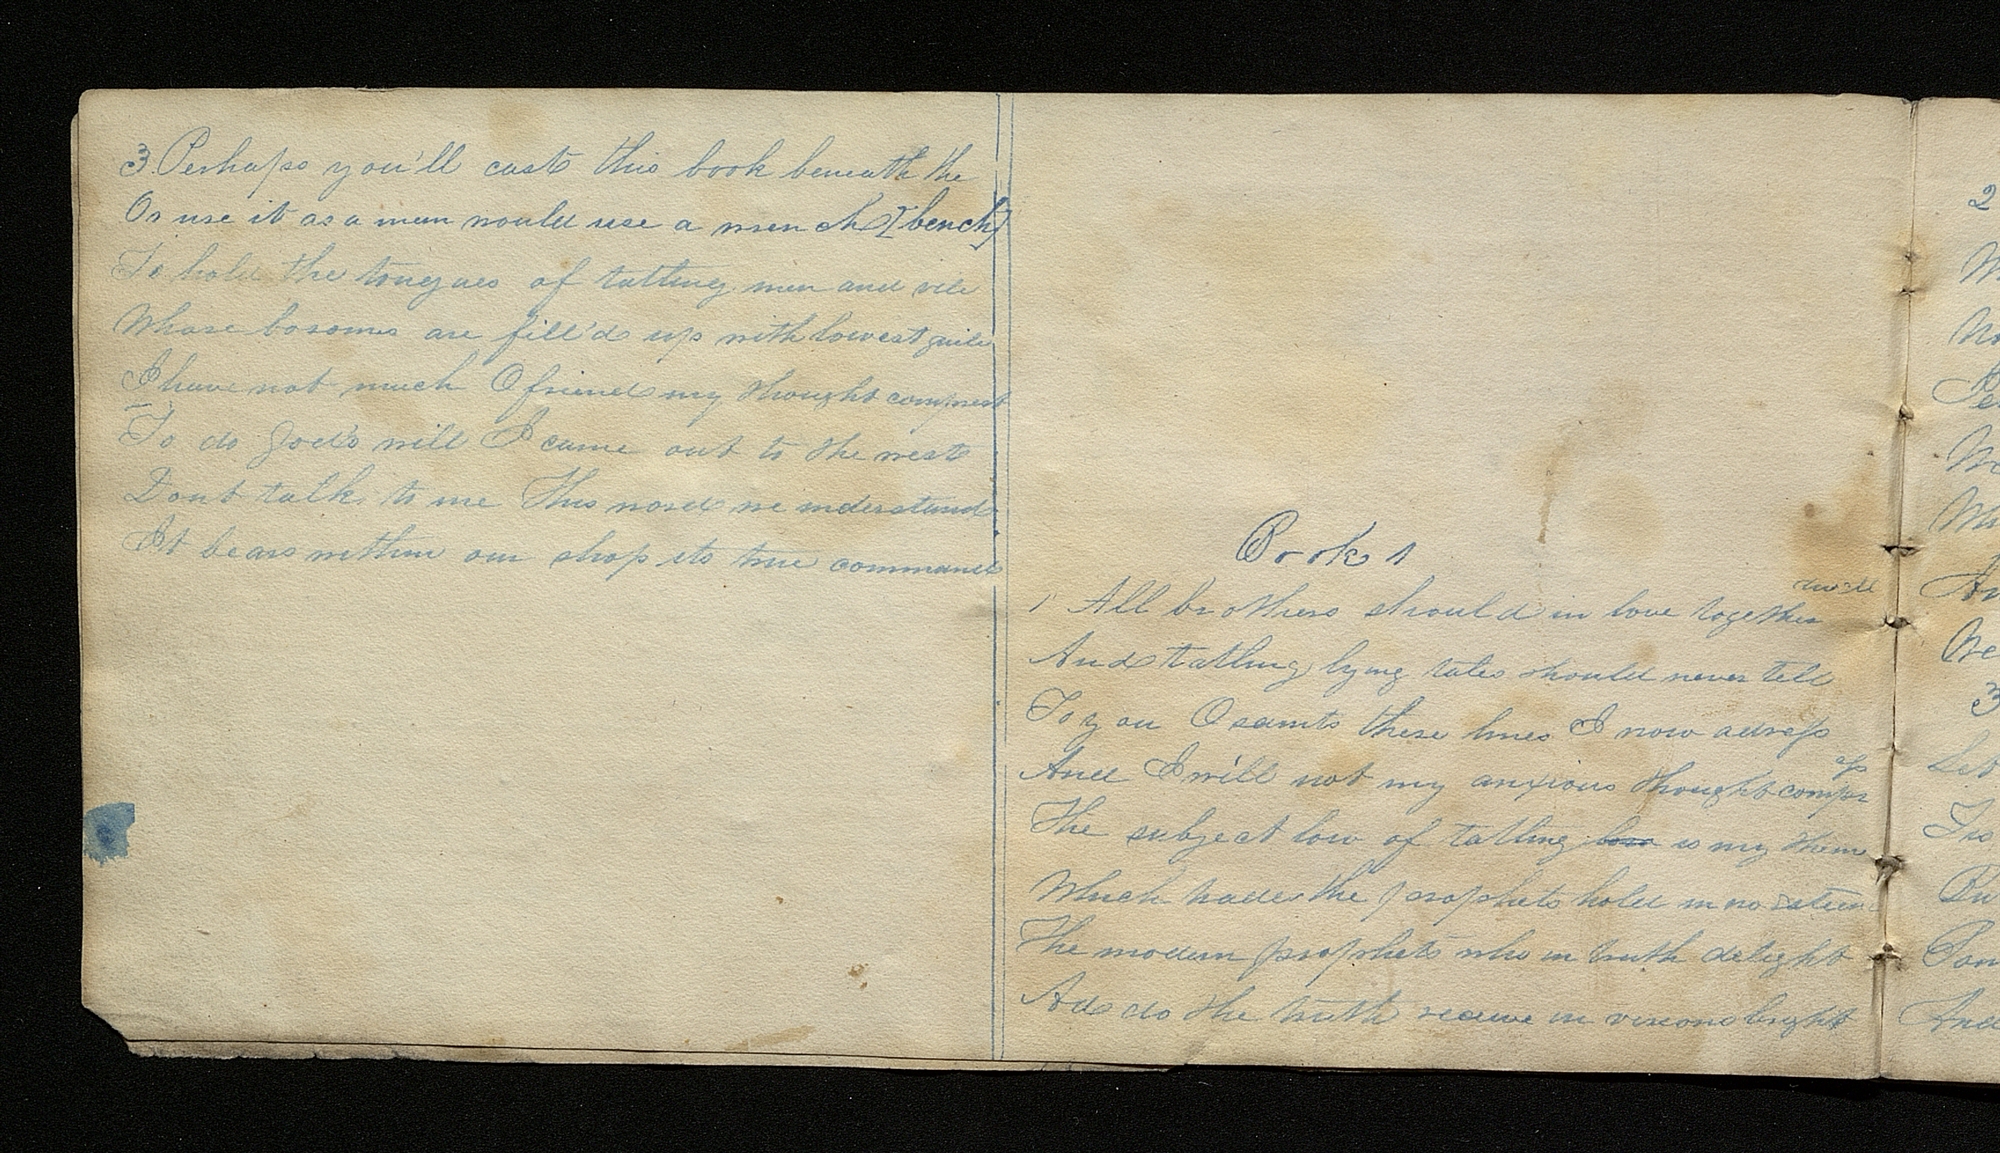 3 Perhaps you'll cast this book beneath the
Or use it as a man would use a wrench [bench]
To hold the tongues of tatling men and vile
Whose bosoms are fill'd up with lowest guile
I have not much O friend my thought comprest
To do god's will I came out to the west
Dont talk to me This word we understand
It bears within our shop its true command
Book 1
1 All brothers should in love together dwell
And tatling lying tales should never tell
To you O saints these lines I now adress
And I will not my anxious thought compress
The subject low of tatling low is my theme
Which trade the prophets hold in no esteem
The modern prophets who in truth delight
And do the truth receive in visions bright
2
3
Let
Tis
And